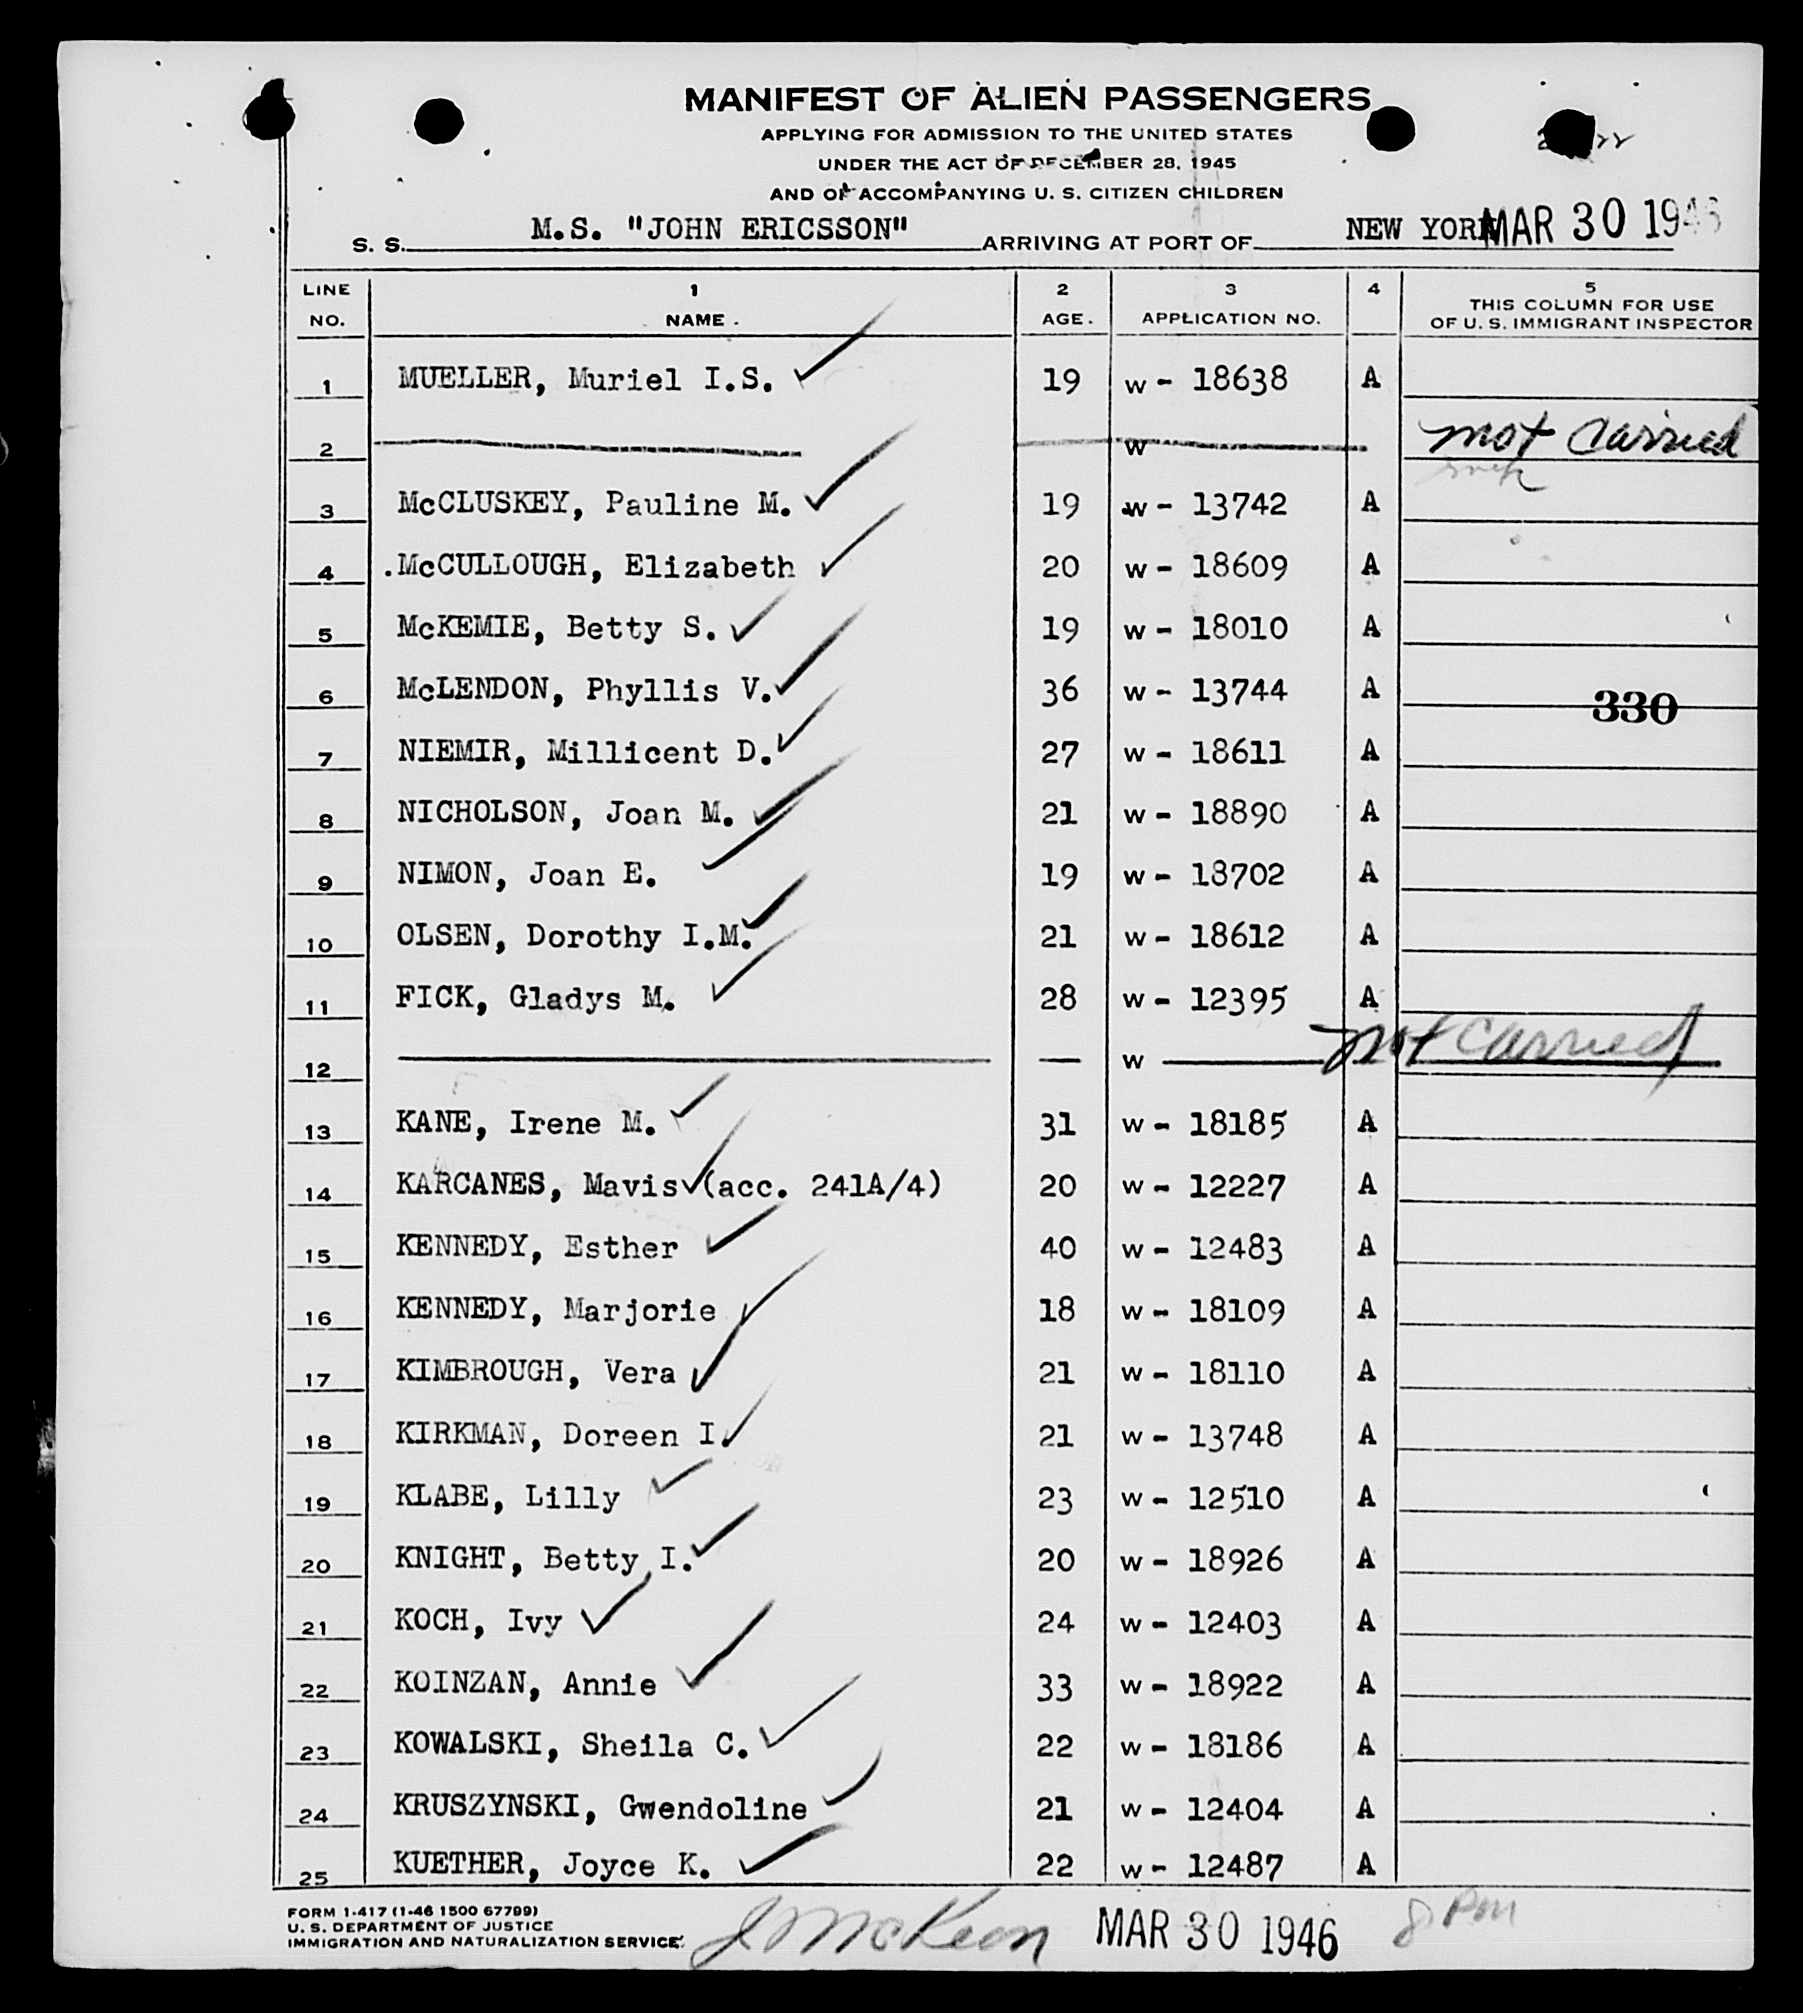 MANIFEST OF ALIEN PASSENGERS
APPLYING FOR ADMISSION TO THE UNITED STATES
UNDER THE ACT OF DECEMBER 28, 1945
AND OF ACCOMPANYING U. S. CITIZEN CHILDREN
S. S. M.S. "JOHN ERICSSON" ARRIVING AT PORT OF NEW YORK MAR 30 1946
LINE NO. 1 NAME. 2 AGE. 3 APPLICATION NO. 4 5 THIS COLUMN FOR USE OF U. S. IMMIGRANT INSPECTOR
1 MUELLER, Muriel I.S. ✓ 19 W - 18638 A
2 W not carried
3 McCLUSKEY, Pauline M. ✓ 19 W - 13742 A
4 .McCULLOUGH, Elizabeth ✓ 20 W - 18609 A
5 McKEMIE, Betty S. ✓ 19 W - 18010 A
6 McLENDON, Phyllis V. ✓ 36 W - 13744 A 330
7 NIEMIR, Millicent D. ✓ 27 W - 18611 A
8 NICHOLSON, Joan M. ✓ 21 W - 18890 A
9 NIMON, Joan E. ✓ 19 W - 18702 A
10 OLSEN, Dorothy I.M. ✓ 21 W - 18612 A
11 FICK, Gladys M. ✓ 28 W - 12395 A
12 — W — not carried
13 KANE, Irene M. ✓ 31 W - 18185 A
14 KARCANES, Mavis ✓ (acc. 241A/4) 20 W - 12227 A
15 KENNEDY, Esther ✓ 40 W - 12483 A
16 KENNEDY, Marjorie ✓ 18 W - 18109 A
17 KIMBROUGH, Vera ✓ 21 W - 18110 A
18 KIRKMAN, Doreen I. ✓ 21 W - 13748 A
19 KLABE, Lilly ✓ 23 W - 12510 A
20 KNIGHT, Betty I. ✓ 20 W - 18926 A
21 KOCH, Ivy ✓ 24 W - 12403 A
22 KOINZAN, Annie ✓ 33 W - 18922 A
23 KOWALSKI, Sheila C. ✓ 22 W - 18186 A
24 KRUSZYNSKI, Gwendoline ✓ 21 W - 12404 A
25 KUETHER, Joyce K. ✓ 22 W - 12487 A
FORM I-417 (1-46 1500 67799)
U. S. DEPARTMENT OF JUSTICE
IMMIGRATION AND NATURALIZATION SERVICE
J McKeon MAR 30 1946 8 PM